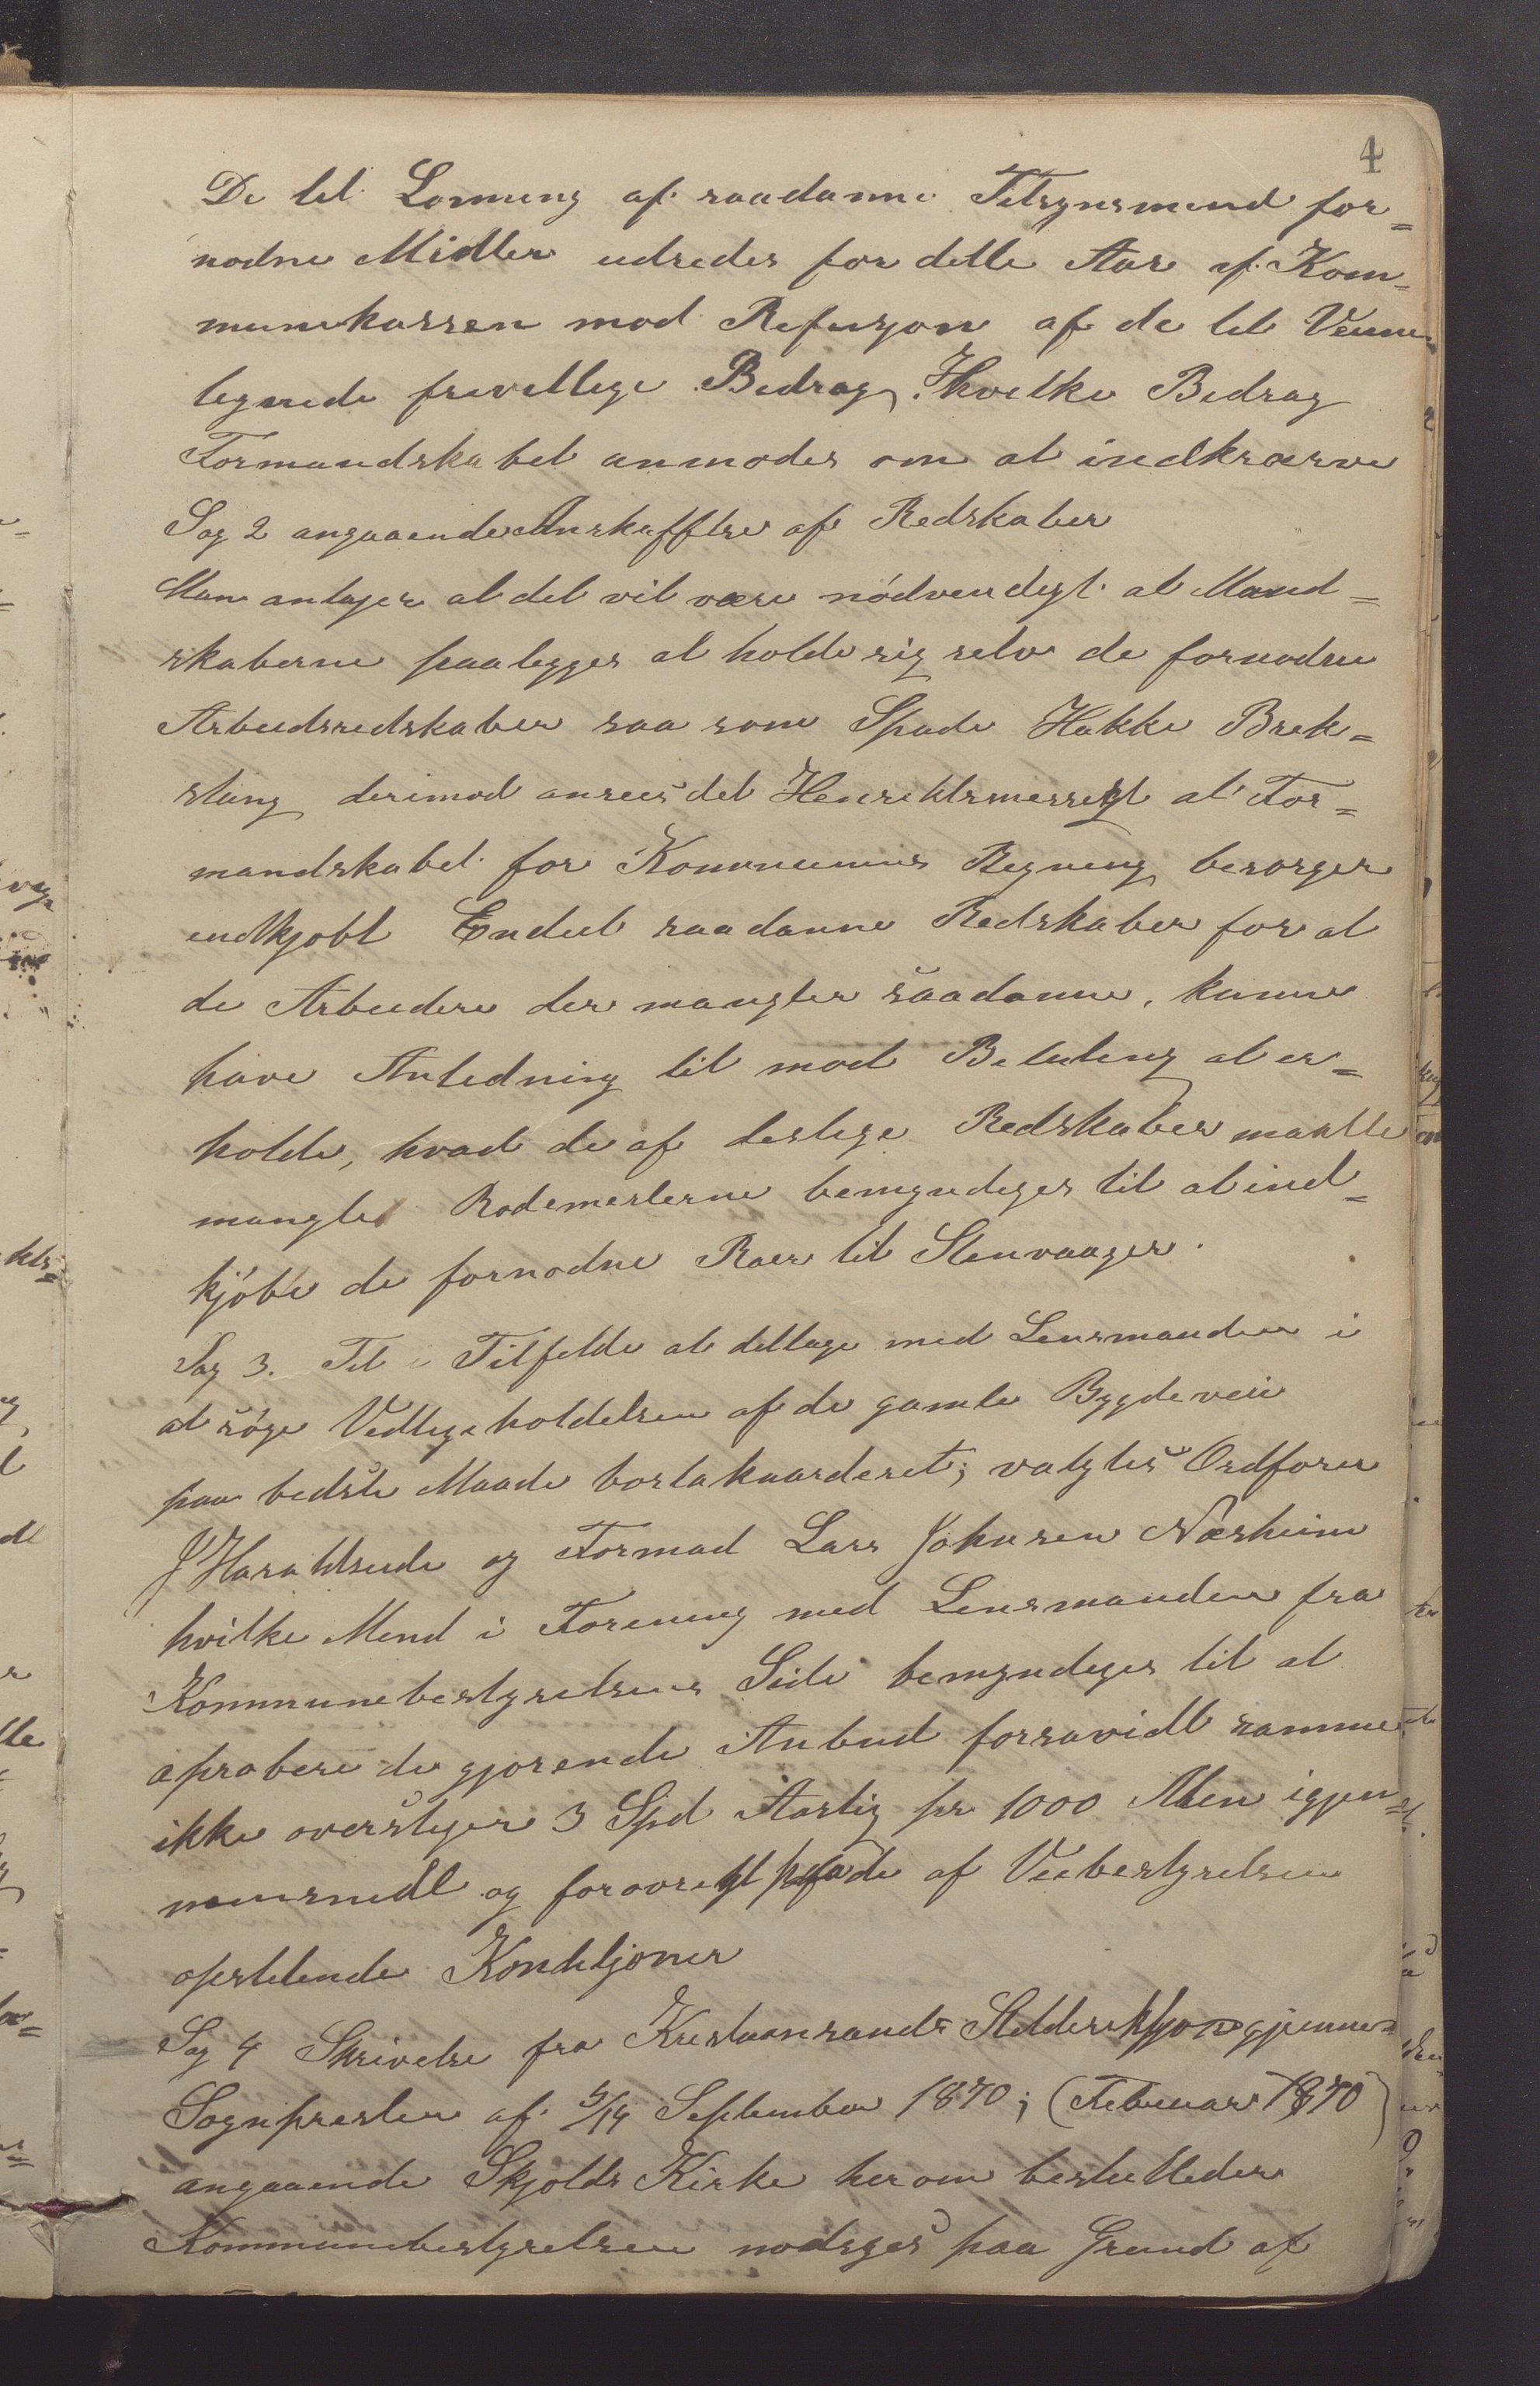 4
De til Lønning af saadanne Tilsynsmend for=
nødne Midler udredes for dette Aar af Kom=
munekassen mod Refusjon af de til Veiene
tegnede frevillige Bedrag, Hvilke Bedrag
Formandskabet anmodes om at indkræve
Sag 2 angaaende Anskaffelse af Redskaber
Man antager at det vil være nødvendigt at Mand=
skaberne paalegges at holde sig selv de fornødne
Arbeidsredskaber saa som Spade Hakke Brek=
stang derimod ansees det Hensiktsmessigt at For=
mandskabet for Kommunens Regning besørger
indkjøbt Endeel saadanne Redskaber for at
de Arbeidere der mangler saadanne, kunne
have Anledning til mod Betaling at er=
holde, hvad de af deslige Redskaber maatte
mangle Rodemesterne bemyndiges til at ind=
kjøbe de fornødne Roer til Stenvaager.
Sag 3. Til i Tilfelde at deltage med Lensmanden i
at søge Vedligeholdelsen af de gamle Bygdeveie
paa bedste Maade bortakaarderet; valgtes Ordfører
J Haraldseide og Formad Lars Johnsen Næsheim
hvilke Mend i Forening med Lensmanden fra
Kommunebestyrelsens Side bemyndiges til at
aprobere de gjørende Anbud forsavidt samme
ikke overstiger 3 Spd Aarlig pr 1000 Alen igjen=
nemsnidt og forøvrigt paa de af Veibestyrelsen
opstillende Konditjoner
Sag 4 Skrivelse fra Kristiansands Stiftdireksjon gjennem
Sognpresten af 5/14 September 1870; (Februar 1870)
angaaende Skjolds Kirke herom besluttedes
Kommunebestyrelsen nødsges paa Grund af